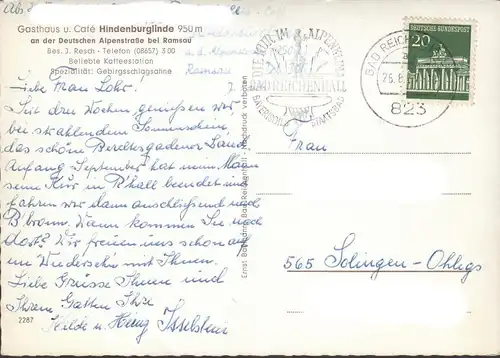 Gasthaus u. Café Hindenburglinde 950 m
an der Deutschen Alpenstraße bei Ramsau
Bes. J. Resch - Telefon (08657) 300
Beliebte Kaffeestation
Spezialität: Gebirgsschlagsahne
Liebe Frau Lohr!
Seit drei Wochen genießen wir,
bei strahlendem Sonnenschein,
das schöne Berchtesgadener Land.
Anfang September hat mein Mann
seine Kur in R'hall beendet und
fahren wir dann anschließend nach
B'bronn. Wann kommen Sie nach
dort? Wir freuen uns schon auf
ein Wiedersehn mit Ihnen.
Liebe Grüsse Ihnen und
Ihrem Gatten Ihre
Hilde u. Heinz Isselstein
2287
Nachdruck verboten
DIE KUR IM ALPENKLIMA
BAD REICHENHALL
BAYERISCHES STAATSBAD
BAD REICHENHALL
823
20
DEUTSCHE BUNDESPOST
Frau
565 Solingen-Ohligs